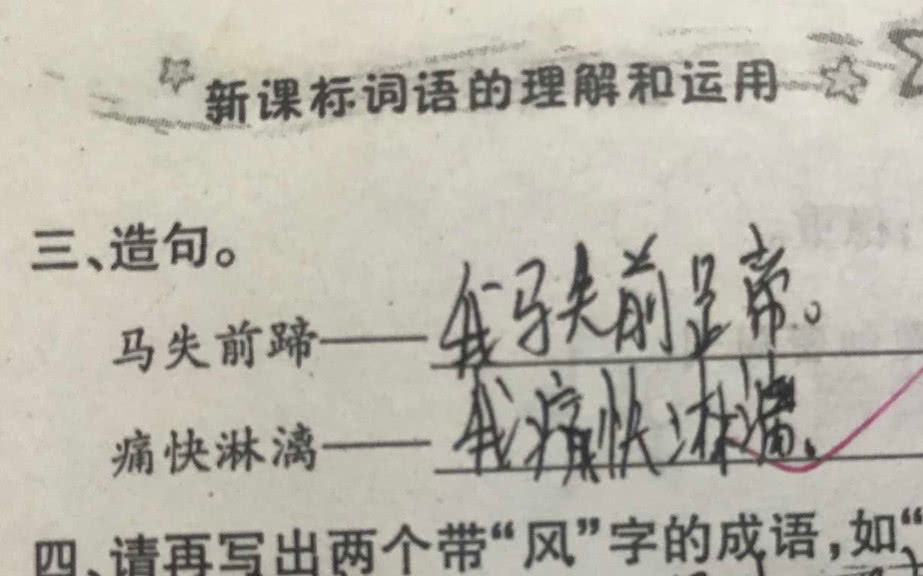 新课标词语的理解和运用
三、造句。
马失前蹄——我马失前蹄。
痛快淋漓——我痛快淋漓。
四、请再写出两个带“风”字的成语,如“